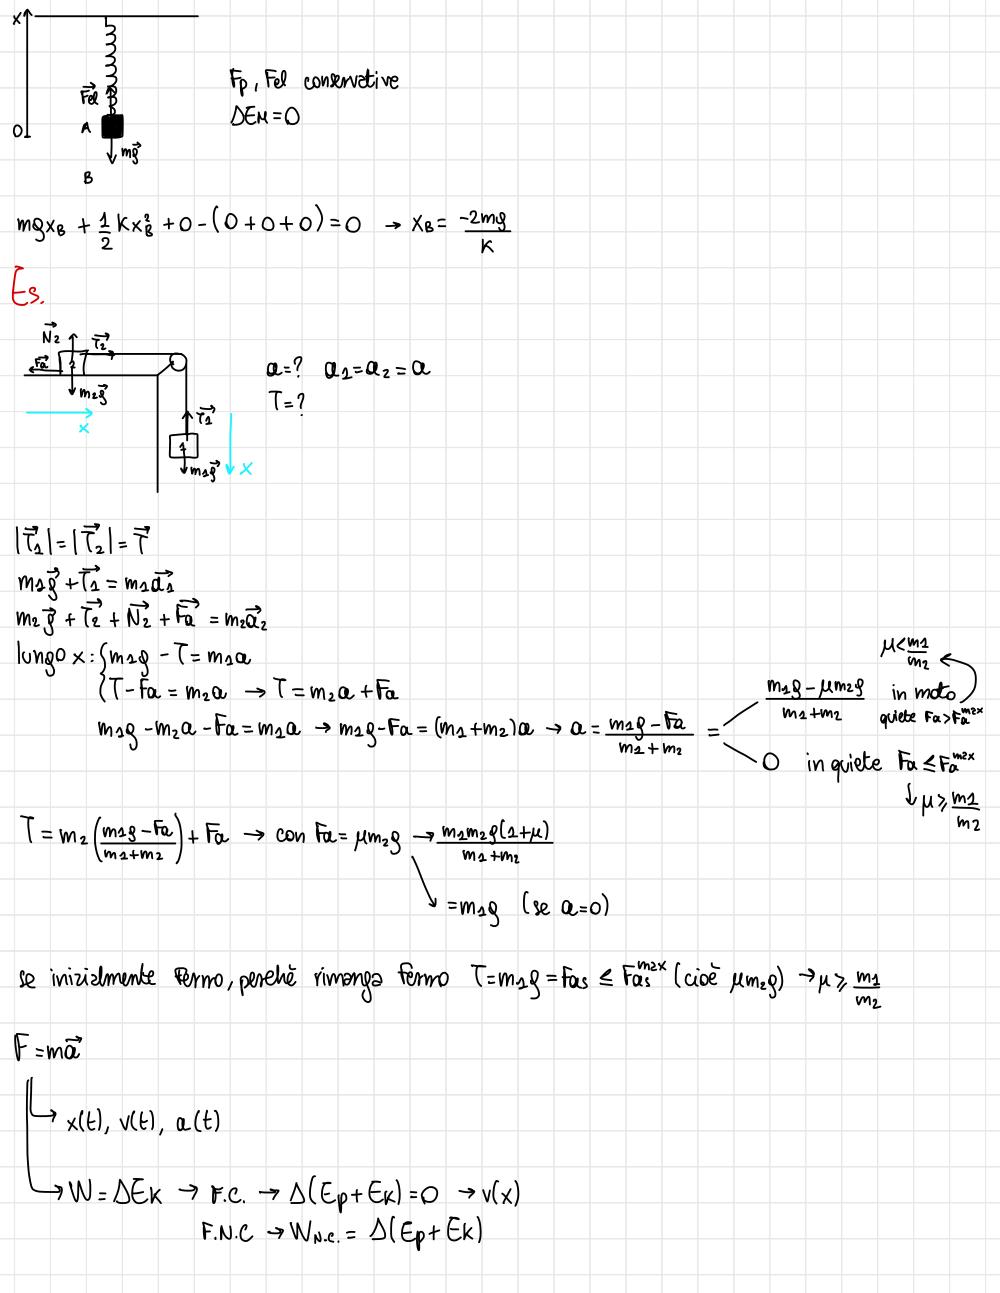 x
Fel
A
0
mg
B
Fp, Fel conservative
ΔEM = 0
mgxB + 1/2 KxB² + 0 - (0 + 0 + 0) = 0 → xB = -2mg/K
Es.
N2
T2
Fa
2
m2g
x
T1
1
m1g
x
a = ? a1 = a2 = a
T = ?
|T1| = |T2| = T
m1g + T1 = m1a1
m2g + T2 + N2 + Fa = m2a2
lungo x: { m1g - T = m1a
T - Fa = m2a → T = m2a + Fa
m1g - m2a - Fa = m1a → m1g - Fa = (m1 + m2)a → a = (m1g - Fa)/(m1 + m2) =
(m1g - μm2g)/(m1 + m2) in moto
μ < m1/m2
quiete Fa > Fa^max
0 in quiete Fa ≤ Fa^max
↓ μ ≥ m1/m2
T = m2 ((m1g - Fa)/(m1 + m2)) + Fa → con Fa = μm2g → m1m2g(1 + μ)/(m1 + m2)
= m1g (se a = 0)
se inizialmente fermo, perchè rimanga fermo T = m1g = Fas ≤ Fas^max (cioè μm2g) → μ ≥ m1/m2
F = ma
→ x(t), v(t), a(t)
→ W = ΔEK → F.C. → Δ(Ep + EK) = 0 → v(x)
F.N.C → WN.C. = Δ(Ep + EK)